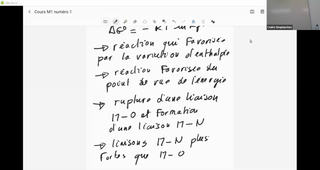 Cours M1 numéro 1
ΔG° = - RT ln
→ réaction qui Favorisée
par la variation d'enthalpie
→ réaction Favorisée du
point de vue de l'énergie
→ rupture d'une liaison
M-O et Formation
d'une liaison M-N
→ liaisons M-N plus
Fortes que M-O